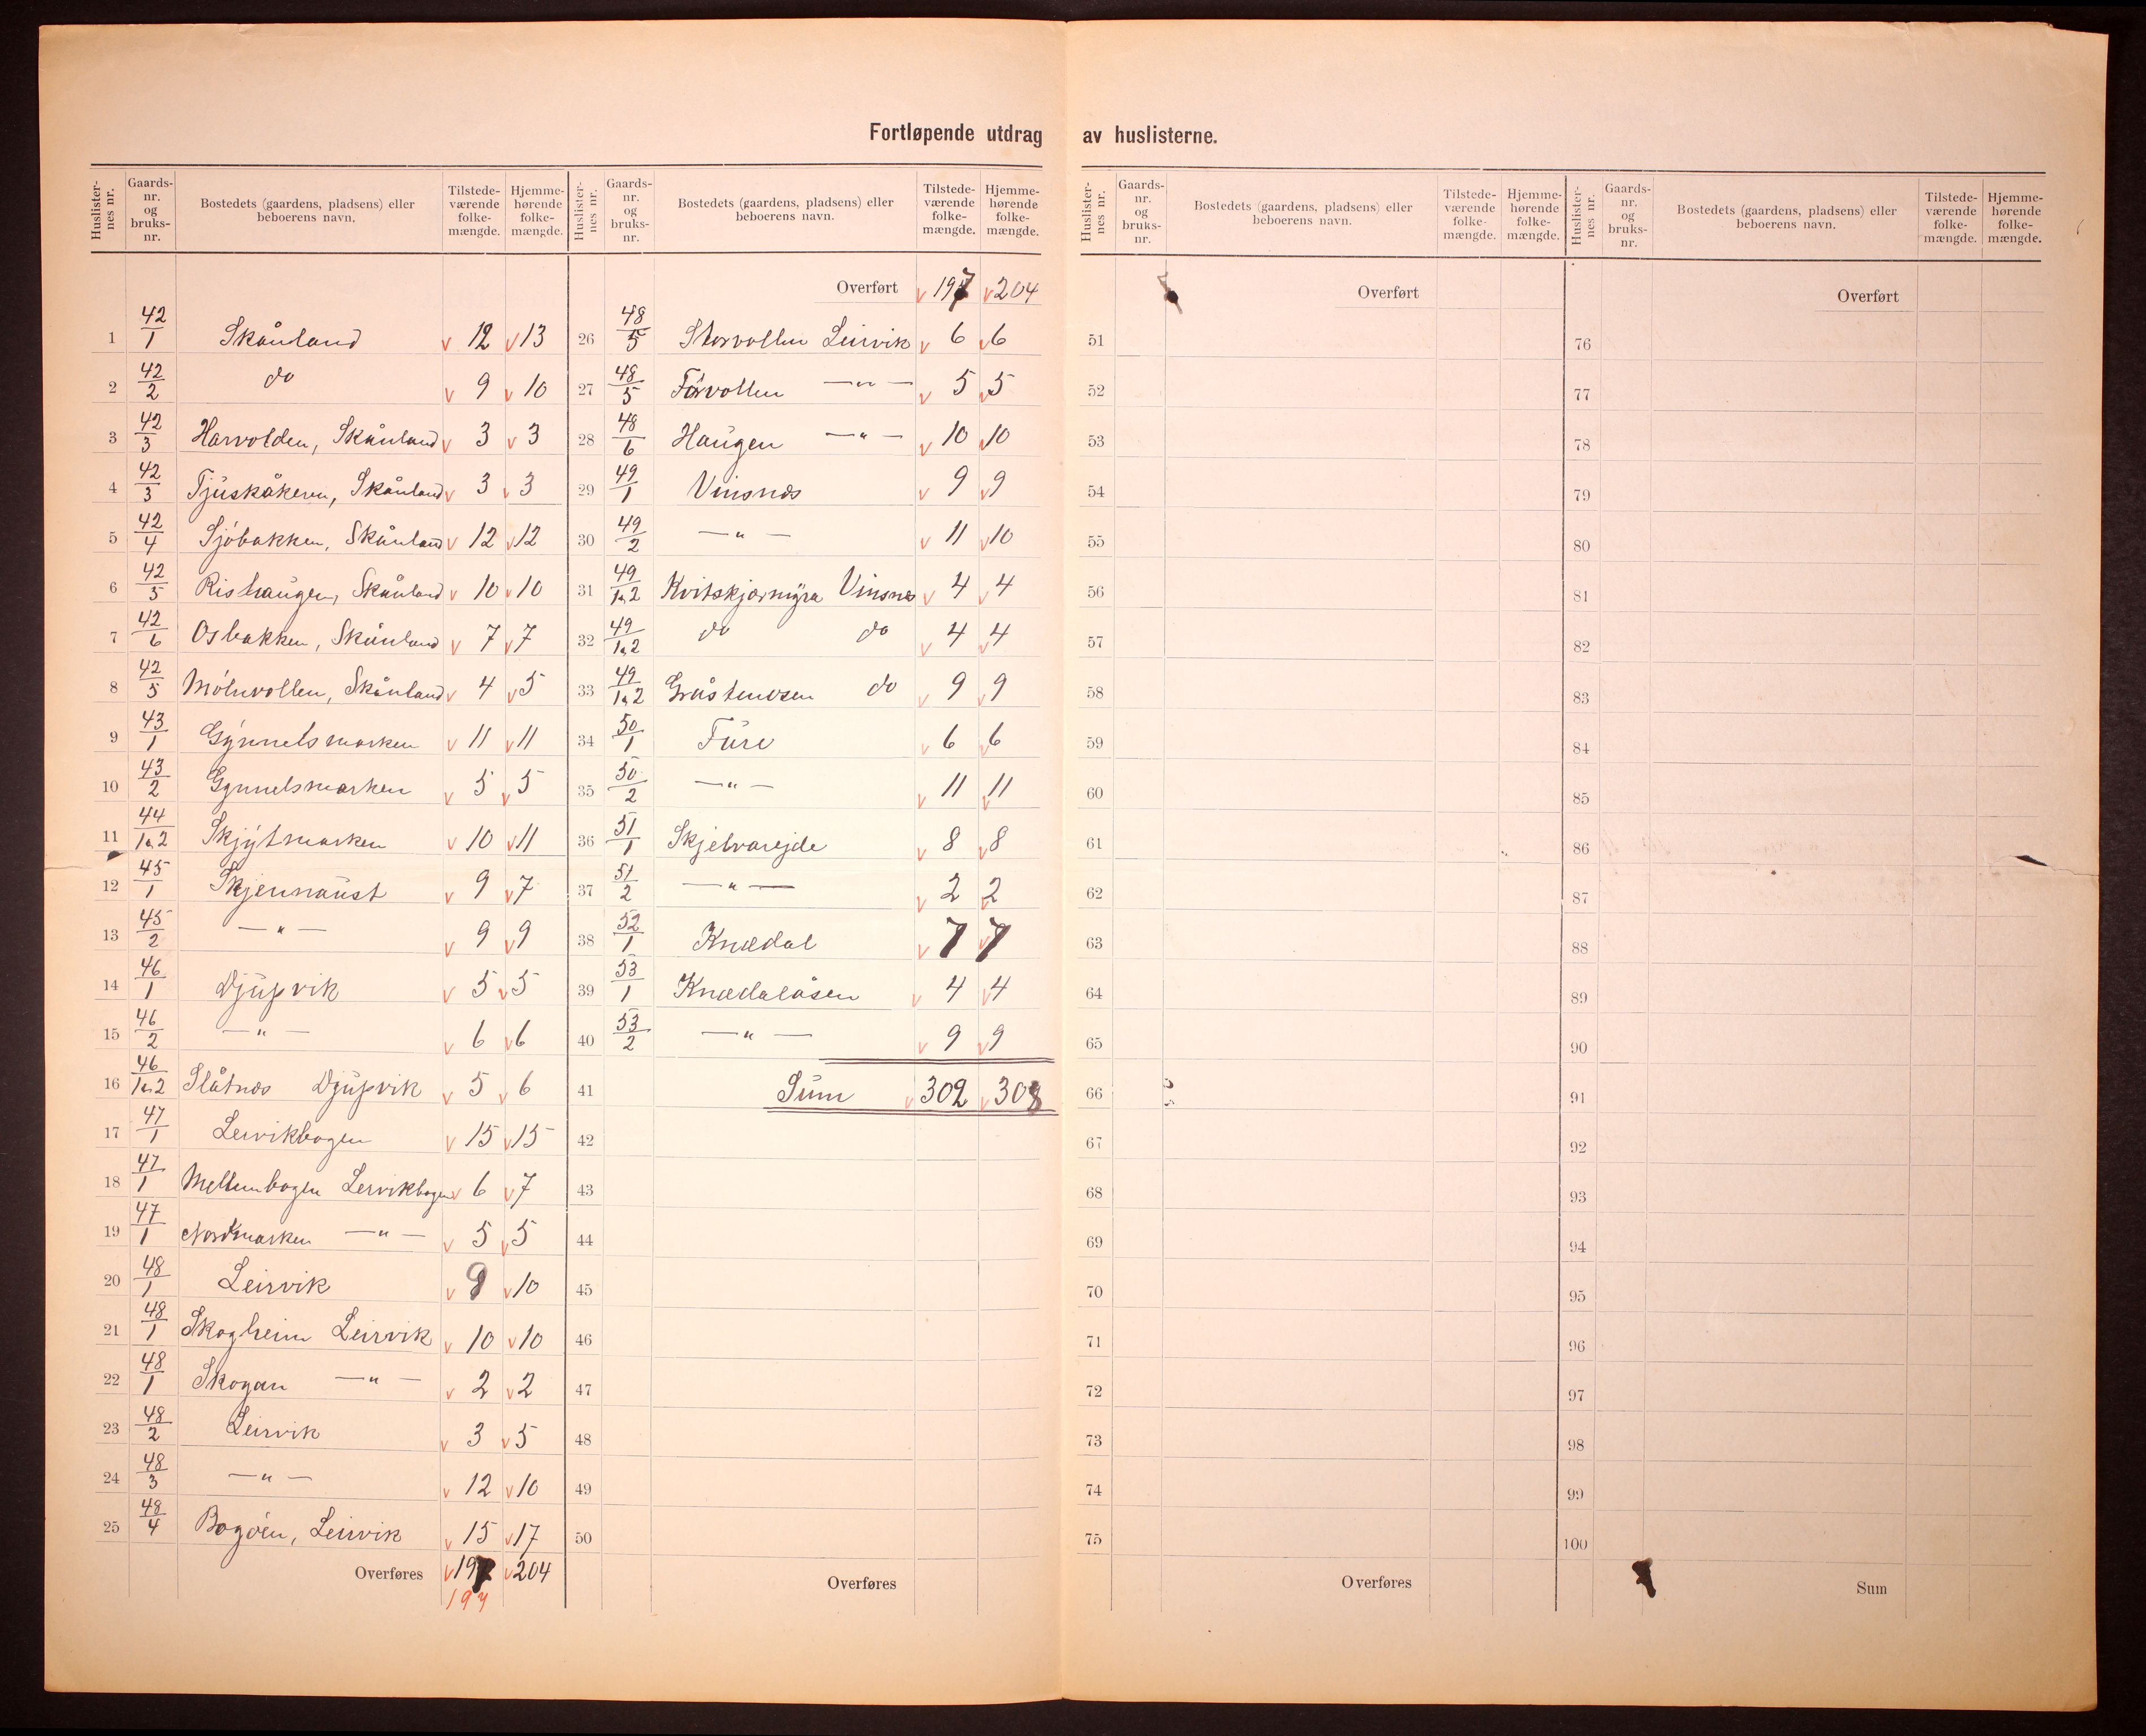 Fortløpende utdrag av huslisterne.
Huslisternes nr. Gaardsnr. og bruksnr. Bostedets (gaardens, pladsens) eller beboerens navn. Tilstedeværende folkemængde. Hjemmehørende folkemængde.
1 42/1 Skånland v 12 v 13
2 42/2 do v 9 v 10
3 42/3 Harvolden, Skånland v 3 v 3
4 42/3 Tjuskåkeren, Skånland v 3 v 3
5 42/4 Sjöbakken, Skånland v 12 v 12
6 42/5 Rishaugen, Skånland v 10 v 10
7 42/6 Osbakken, Skånland v 7 v 7
8 42/5 Mölnvollen, Skånland v 4 v 5
9 43/1 Gynnelsmarken v 11 v 11
10 43/2 Gynnelsmarken v 5 v 5
11 44/1a2 Skjytmarken v 10 v 11
12 45/1 Skjennaust v 9 v 7
13 45/2 — " — v 9 v 9
14 46/1 Djupvik v 5 v 5
15 46/2 — " — v 6 v 6
16 46/1a2 Slåtnes Djupvik v 5 v 6
17 47/1 Leirvikbogen v 15 v 15
18 47/1 Mellembogen Leirvikbogen v 6 v 7
19 47/1 Nordmarken — " — v 5 v 5
20 48/1 Leirvik v 9 v 10
21 48/1 Skogheim Leirvik v 10 v 10
22 48/1 Skogan — " — v 2 v 2
23 48/2 Leirvik v 3 v 5
24 48/3 — " — v 12 v 10
25 48/4 Bogöen, Leirvik v 15 v 17
Overføres v 197 v 204
197
Huslisternes nr. Gaardsnr. og bruksnr. Bostedets (gaardens, pladsens) eller beboerens navn. Tilstedeværende folkemængde. Hjemmehørende folkemængde.
Overført v 197 v 204
26 48/5 Storvollen Leirvik v 6 v 6
27 48/5 Förvollen — " — v 5 v 5
28 48/6 Haugen — " — v 10 v 10
29 49/1 Vinsnes v 9 v 9
30 49/2 — " — v 11 v 10
31 49/1a2 Kvitskjærmyra Vinsnes v 4 v 4
32 49/1a2 do do v 4 v 4
33 49/1a2 Gråstenosen do v 9 v 9
34 50/1 Fure v 6 v 6
35 50/2 — " — v 11 v 11
36 51/1 Skjelvareide v 8 v 8
37 51/2 — " — v 2 v 2
38 52/1 Knædal v 7 v 7
39 53/1 Knædalåsen v 4 v 4
40 53/2 — " — v 9 v 9
41 Sum v 302 v 308
42
43
44
45
46
47
48
49
50
Overføres
Huslisternes nr. Gaardsnr. og bruksnr. Bostedets (gaardens, pladsens) eller beboerens navn. Tilstedeværende folkemængde. Hjemmehørende folkemængde.
Overført
51
52
53
54
55
56
57
58
59
60
61
62
63
64
65
66
67
68
69
70
71
72
73
74
75
Overføres
Huslisternes nr. Gaardsnr. og bruksnr. Bostedets (gaardens, pladsens) eller beboerens navn. Tilstedeværende folkemængde. Hjemmehørende folkemængde.
Overført
76
77
78
79
80
81
82
83
84
85
86
87
88
89
90
91
92
93
94
95
96
97
98
99
100
Sum